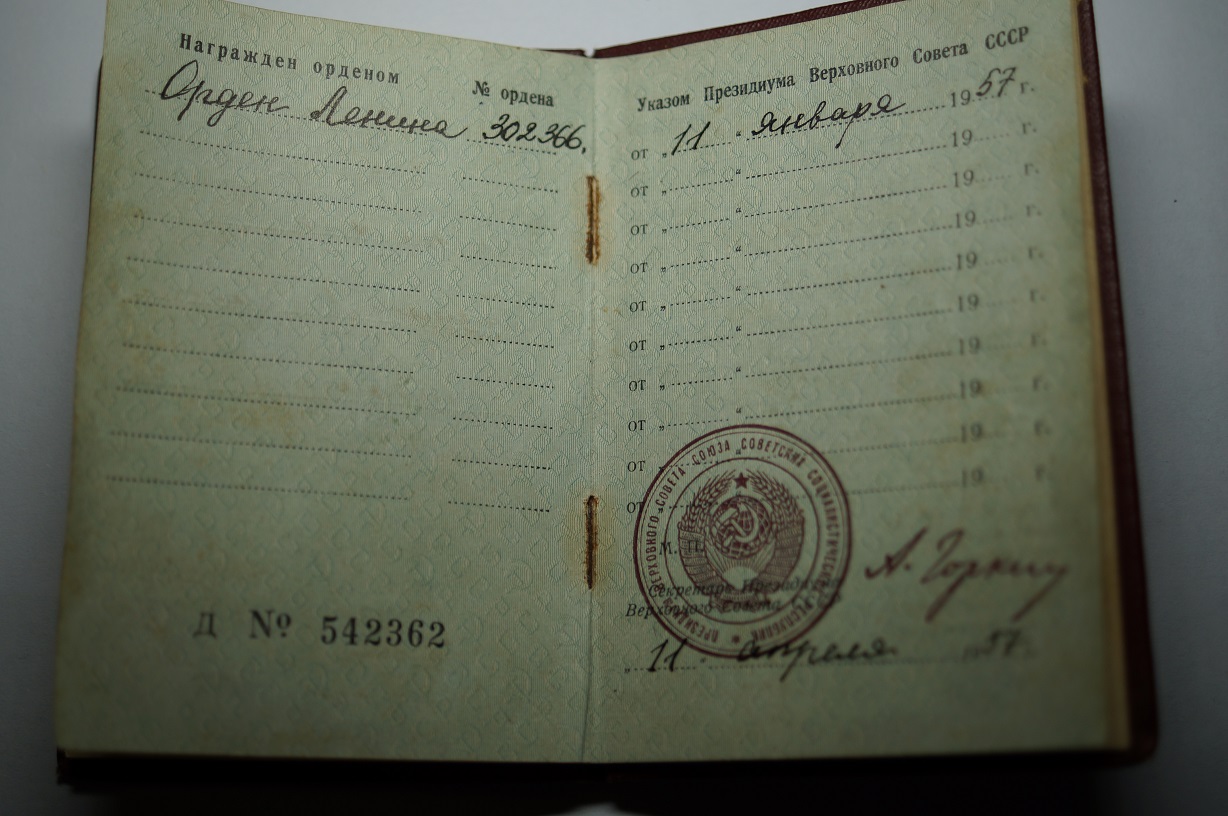 Награжден орденом
№ ордена
Орден Ленина 302366.
Д № 542362
Указом Президиума Верховного Совета СССР
от „11 “ января 1957 г.
от „ “ 19 г.
от „ “ 19 г.
от „ “ 19 г.
от „ “ 19 г.
от „ “ 19 г.
от „ “ 19 г.
от „ “ 19 г.
от „ “ 19 г.
от „ “ 19 г.
М. П.
ПРЕЗИДИУМ ВЕРХОВНОГО СОВЕТА СОЮЗА СОВЕТСКИХ СОЦИАЛИСТИЧЕСКИХ РЕСПУБЛИК
Секретарь Президиума
Верховного Совета
А. Горкин
„11 “ апреля 1957 г.